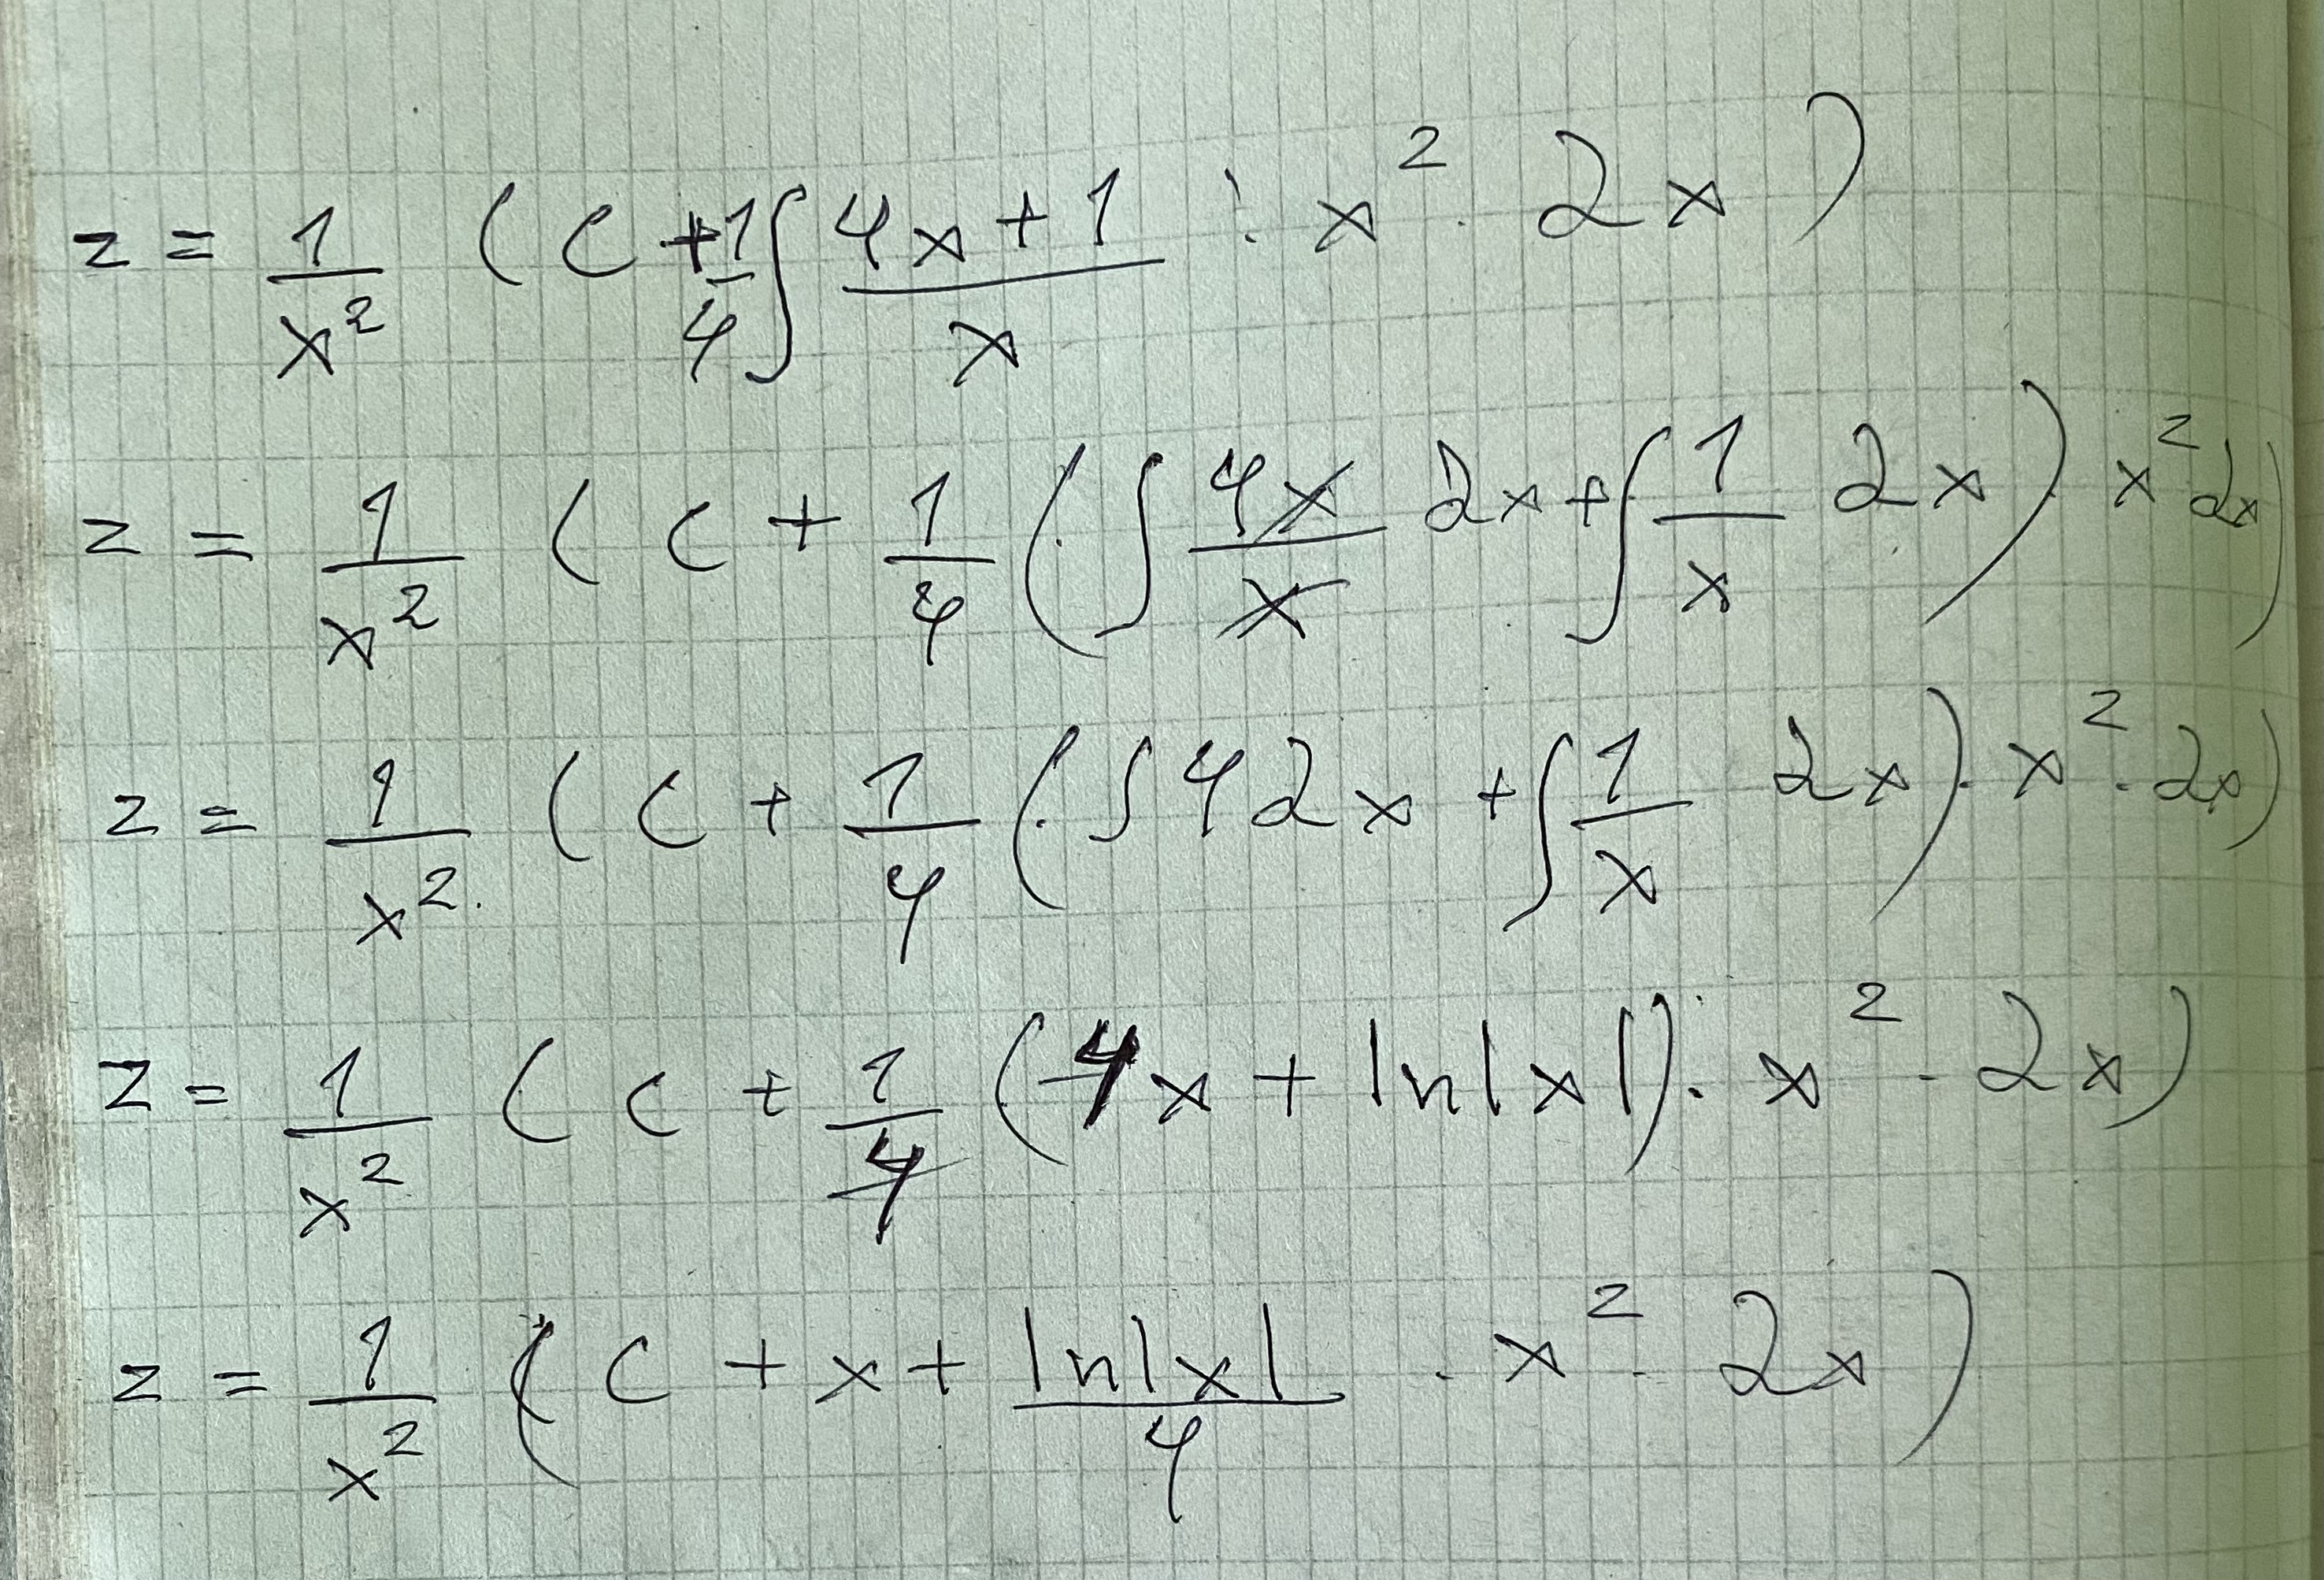 z = 1/x² ( C + 1/4 ∫ (4x + 1)/x · x² · 2x )
z = 1/x² ( C + 1/4 ( ∫ 4x/x 2x + ∫ 1/x 2x ) x² 2x )
z = 1/x² ( C + 1/4 ( ∫ 4 2x + ∫ 1/x 2x ) · x² · 2x )
z = 1/x² ( C + 1/4 ( 4x + ln|x| ) · x² · 2x )
z = 1/x² ( C + x + ln|x|/4 · x² · 2x )